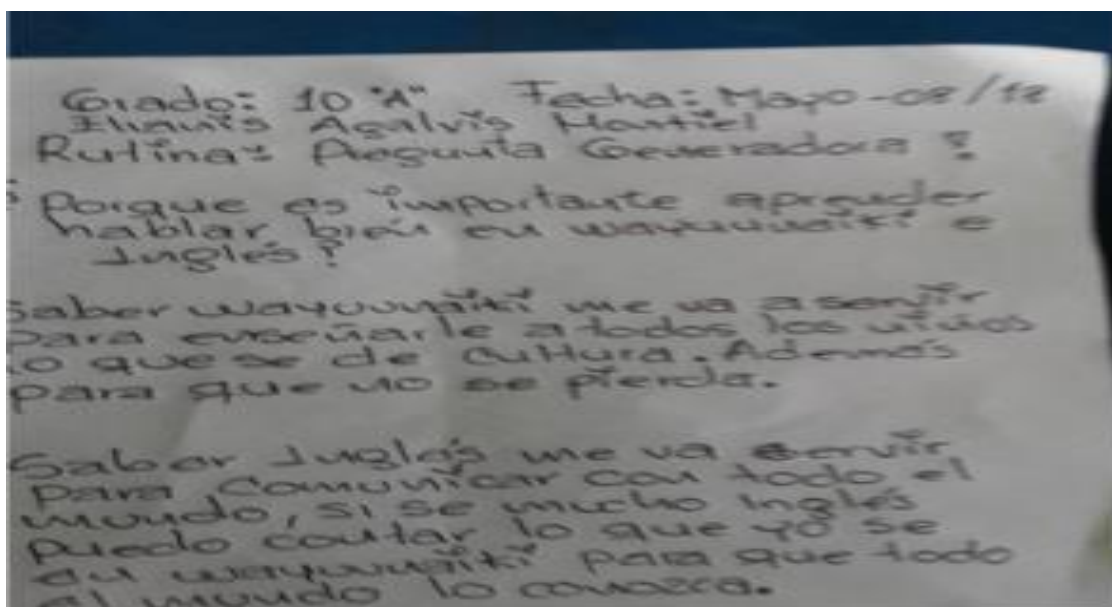 Grado: 10 "A" Fecha: Mayo-08/18
Agalvis Montiel
Rutina: Pregunta Generadora:
Porque es importante aprender
hablar bien en wayuunaiki e
Inglés?
Saber wayuunaiki me va a servir
para enseñarle a todos los niños
lo que se de cultura. Además
para que no se pierda.
Saber Inglés me va servir
para comunicar con todo el
mundo, si se mucho inglés
puedo contar lo que yo se
en wayuunaiki para que todo
el mundo lo conozca.